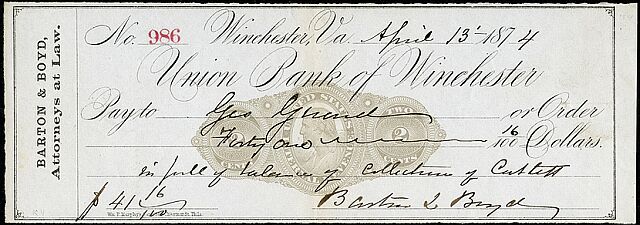 BARTON & BOYD,
Attorneys at Law.
No. 986 Winchester, Va. April 13 1874
Union Bank of Winchester
Pay to Geo Ginn or Order
Forty one 16/100 Dollars.
UNITED STATES
TWO
2 2
CENTS
in full of balance of collection of Catlett
$ 41 16/100 Barton & Boyd
Wm. F. Murphy's
Phila.